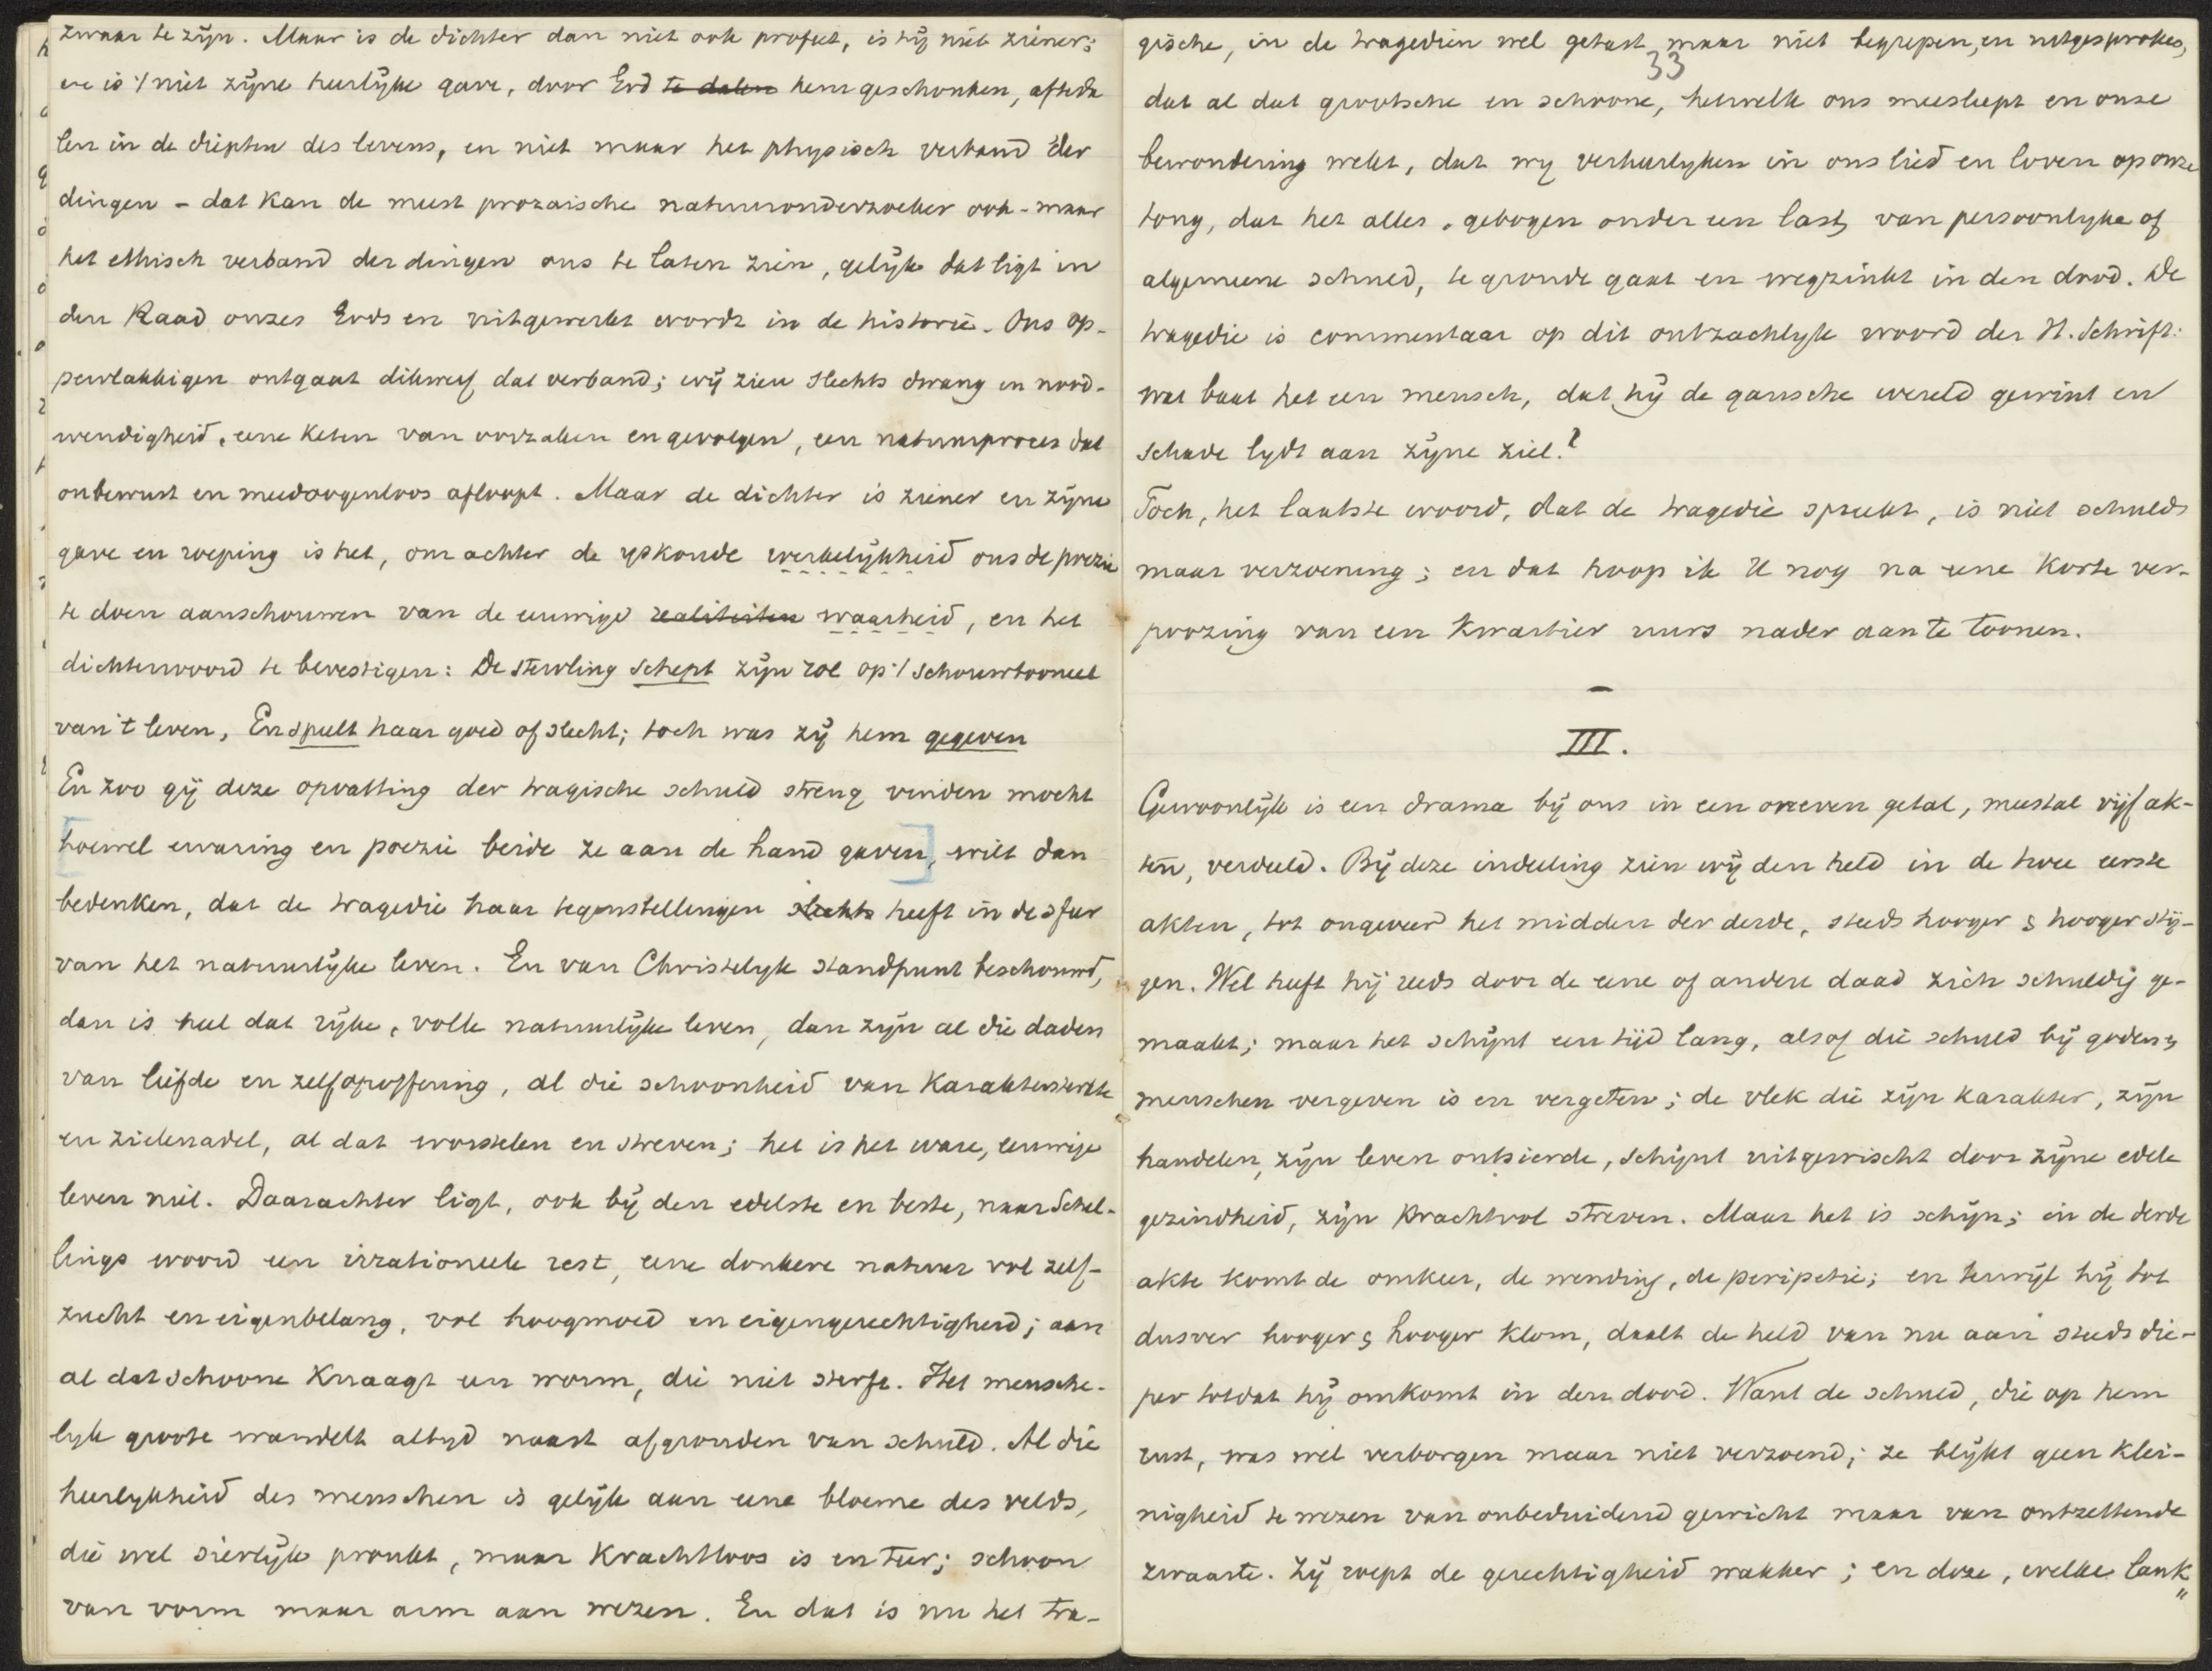 zwaar te zijn. Maar is de dichter dan niet ook profeet, is hij niet ziener;
en is 't niet zijne heerlijke gave, door God te dalen hem geschonken, af te da
len in de diepten des levens, en niet maar het physisch verband der
dingen - dat kan de meest prozaische natuuronderzoeker ook - maar
het ethisch verband der dingen ons te laten zien, gelijk dat ligt in
den Raad onzes Gods en uitgewerkt wordt in de historie. Ons op-
pervlakkigen ontgaat dikwerf dat verband; wij zien slechts dwang en nood-
wendigheid, eene keten van oorzaken en gevolgen, een natuurproces dat
onbewust en meedoogenloos afloopt. Maar de dichter is ziener en zijne
gave en roeping is het, om achter de yskoude werkelijkheid ons de poezie
te doen aanschouwen van de eeuwige realiteiten waarheid, en het
dichterwoord te bevestigen: De sterveling schept zijn rol op 't schouwtooneel
van 't leven, En speelt haar goed of slecht; toch was zij hem gegeven
En zoo gij deze opvatting der tragische schuld streng vinden mocht
[hoewel ervaring en poezie beide ze aan de hand gaven], wilt dan
bedenken, dat de tragedie haar tegenstellingen slechts heeft in de sfeer
van het natuurlijke leven. En van Christelyk standpunt beschouwd,
dan is heel dat rijke, volle natuurlijke leven, dan zijn al die daden
van liefde en zelfopoffering, al die schoonheid van karaktersterkte
en zielenadel, al dat worstelen en streven; het is het ware, eeuwige
leven niet. Daarachter ligt, ook bij den edelste en beste, naar Schel-
lings woord een irrationeele rest, eene donkere natuur vol zelf-
zucht en eigenbelang, vol hoogmoed en eigengerechtigheid; aan
al dat schoone knaagt een worm, die niet sterft. Het mensche-
lyk groote wandelt altyd naast afgronden van schuld. Al die
heerlykheid des menschen is gelijk aan eene bloeme des velds,
die wel sierlijk pronkt, maar krachtloos is en teer; schoon
van vorm maar arm aan wezen. En dat is nu het tra-
33
gische, in de tragedien wel getast maar niet begrepen, en uitgesproken,
dat al dat grootsche en schoone, hetwelk ons meesleept en onze
bewondering wekt, dat wy verheerlyken in ons lied en loven op onze
tong, dat het alles, gebogen onder een last, van persoonlyke of
algemeene schuld, te gronde gaat en wegzinkt in den dood. De
tragedie is commentaar op dit ontzachlyk woord der H. Schrift:
wat baat het een mensch, dat hij de gansche wereld gewint en
schade lydt aan zijne ziel?
Toch, het laatste woord, dat de tragedie spreekt, is niet schuld
maar verzoening; en dat hoop ik U nog na eene korte ver-
poozing van een kwartier uurs nader aan te toonen.
—
III.
Gewoonlijk is een drama bij ons in een oneven getal, meestal vijf ak-
ten, verdeeld. Bij deze indeeling zien wij den held in de twee eerste
akten, tot ongeveer het midden der derde, steeds hooger & hooger stij-
gen. Wel heeft hij reeds door de eene of andere daad zich schuldig ge-
maakt; maar het schijnt een tijd lang, alsof die schuld bij goden &
menschen vergeven is en vergeten; de vlek die zijn karakter, zijn
handelen, zijn leven ontsierde, schijnt uitgewischt door zijne edele
gezindheid, zijn krachtvol streven. Maar het is schijn; in de derde
akte komt de omkeer, de wending, de peripetie; en terwijl hij tot
dusver hooger & hooger klom, daalt de held van nu aan steeds die-
per totdat hij omkomt in den dood. Want de schuld, die op hem
rust, was wel verborgen maar niet verzoend; ze blijkt geen klei-
nigheid te wezen van onbeduidend gewicht maar van ontzettende
zwaarte. Zij roept de gerechtigheid wakker; en deze, welke lank„